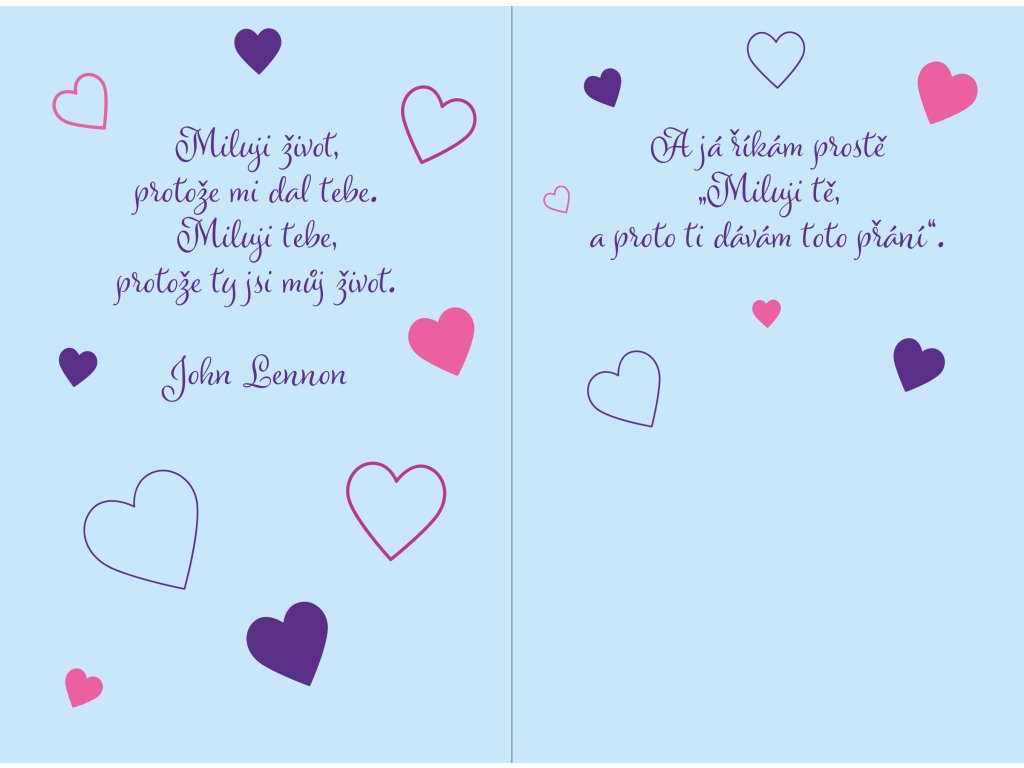 Miluji život,
protože mi dal tebe.
Miluji tebe,
protože ty jsi můj život.
John Lennon
A já říkám prostě
„Miluji tě,
a proto ti dávám toto přání“.